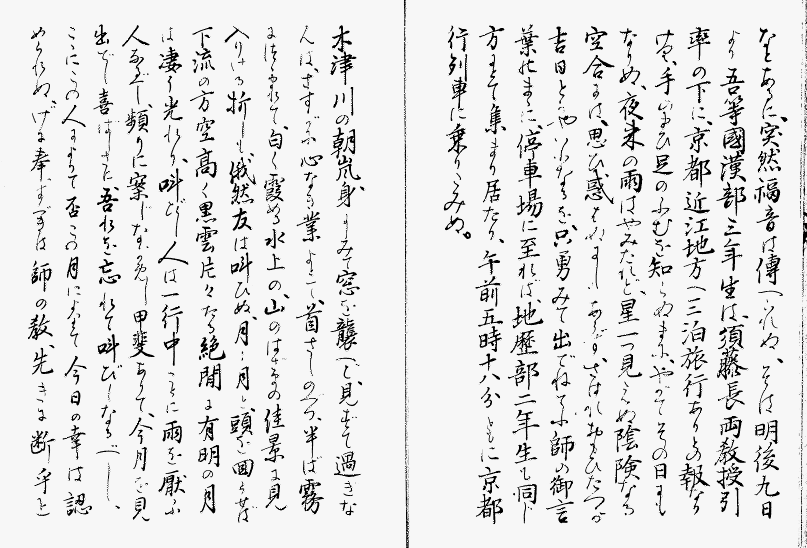 なとあるに、突然福音は傳へられぬ、そは明後九日
より吾等國漢部三年生は、須藤長両教授引
率の下に、京都近江地方へ三泊旅行ありとの報なり
手の舞ひ足のふむを知らぬまにやがてその日とも
なりぬ、夜来の雨はやみたれど、星一つ見えぬ陰険なる
空合には、思ひ惑
吉日と 只勇みて出でねてふ師の御言
葉のまに、停車場に至れば、地歴部二年生も同じ
方とて集まり居たり、午前五時十八分ともに京都
行列車に乗りこみぬ。
木津川の朝嵐身にしみて窓を襲へど、見ずて過ぎな
んはさすがに心なき業よとて、首さしのべつ、半ば霧
につゝまれて、匂く霞める水上の山のはざまの佳景に見
入りける折しも、俄然友は叫びぬ、月、月と、頭を回らせば
下流の方空高く黒雲片々たる絶間に有明の月
は凄う光れり、叫びし人は一行中ことに雨を厭ふ
人なりし、頻りに案じなが 甲斐ありて、今月を見
出でし喜ばしさに吾れを忘れて叫びしなるべし、
こゝにこの人によりて否この月によりて今日の幸は認
められぬ、げに奉ずべきは師の教、先きに断乎と